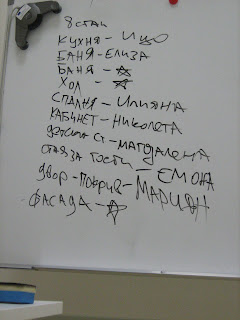 8 стаи
кухня - Ицо
Баня - Елиза
Баня - ☆
Хол - ☆
Спалня - Илияна
Кабинет - Николета
детска ст - Магдалена
стая за гости - Емона
двор - покрив - Мариян
Фасада - ☆